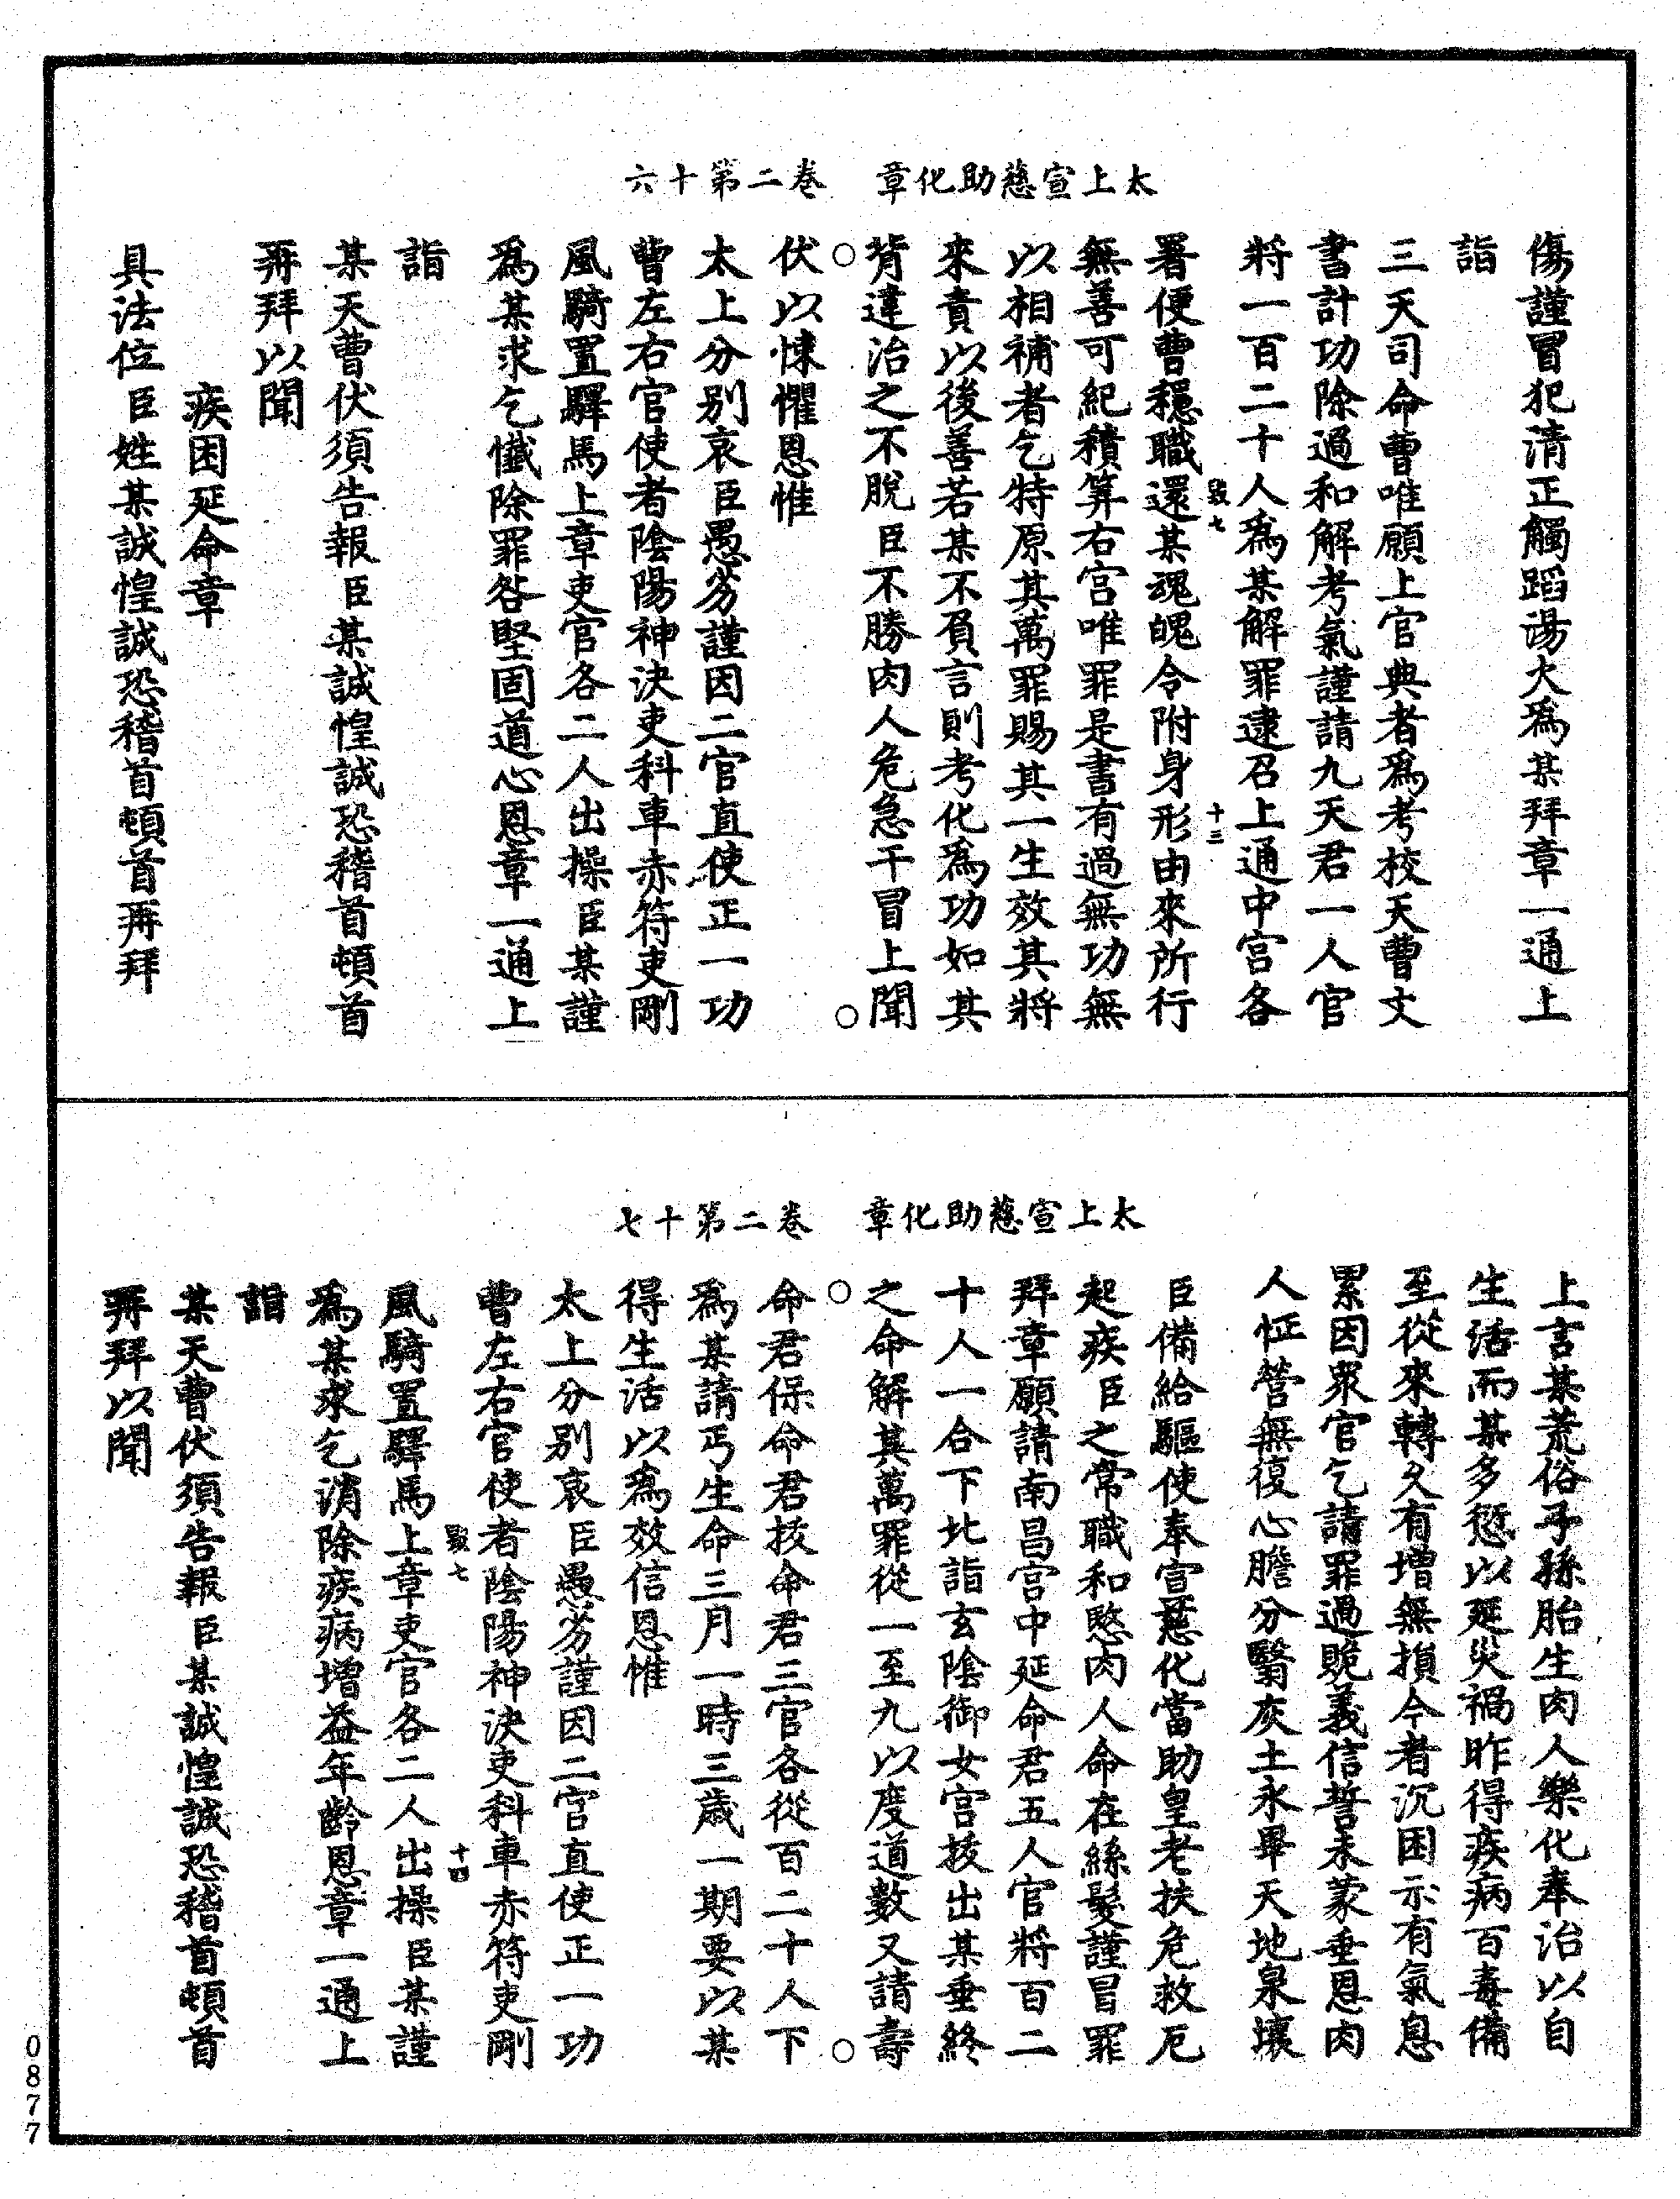 太上宣慈助化章　卷二第十六
傷謹冒犯清正觸蹈湯火為某拜章一通上
詣
三天司命曹唯願上官典者為考校天曹文
書計功除過和解考氣謹請九天君一人官
將一百二十人為某解罪逮召上通中宮各
毀七　十三
署便曹穩職還某魂魄令附身形由來所行
無善可紀積筭右宮唯罪是書有過無功無
以相補者乞特原其萬罪賜其一生效其將
來責以後善若某不負言則考化為功如其
背違治之不脫臣不勝肉人危急干冒上聞
伏以悚懼恩惟
太上分別哀臣愚劣謹因二官直使正一功
曹左右官使者陰陽神決吏科車赤符吏剛
風騎置驛馬上章吏官各二人出操臣某謹
為某求乞懺除罪咎堅固道心恩章一通上
詣
某天曹伏須告報臣某誠惶誠恐稽首頓首
再拜以聞
疾困延命章
具法位臣姓某誠惶誠恐稽首頓首再拜
太上宣慈助化章　卷二第十七
上言某荒俗子孫胎生肉人樂化奉治以自
生活而某多愆以延災禍昨得疾病百毒備
至從來轉久有增無損今者沉困示有氣息
累因眾官乞請罪過賧義信誓未蒙垂恩肉
人怔營無復心膽分翳灰土永畢天地泉壤
臣備給驅使奉宣慈化當助皇老扶危救厄
起疾臣之常職和愍肉人命在絲髮謹冒罪
拜章願請南昌宮中延命君五人官將百二
十人一合下北詣玄陰御女宮拔出某垂終
之命解其萬罪從一至九以度道數又請壽
命君保命君拔命君三官各從百二十人下
為某請丐生命三月一時三歲一期要以某
得生活以為效信恩惟
太上分別哀臣愚劣謹因二官直使正一功
曹左右官使者陰陽神決吏科車赤符吏剛
毀七　十四
風騎置驛馬上章吏官各二人出操臣某謹
為某求乞消除疾病增益年齡恩章一通上
詣
某天曹伏須告報臣某誠惶誠恐稽首頓首
再拜以聞
0877